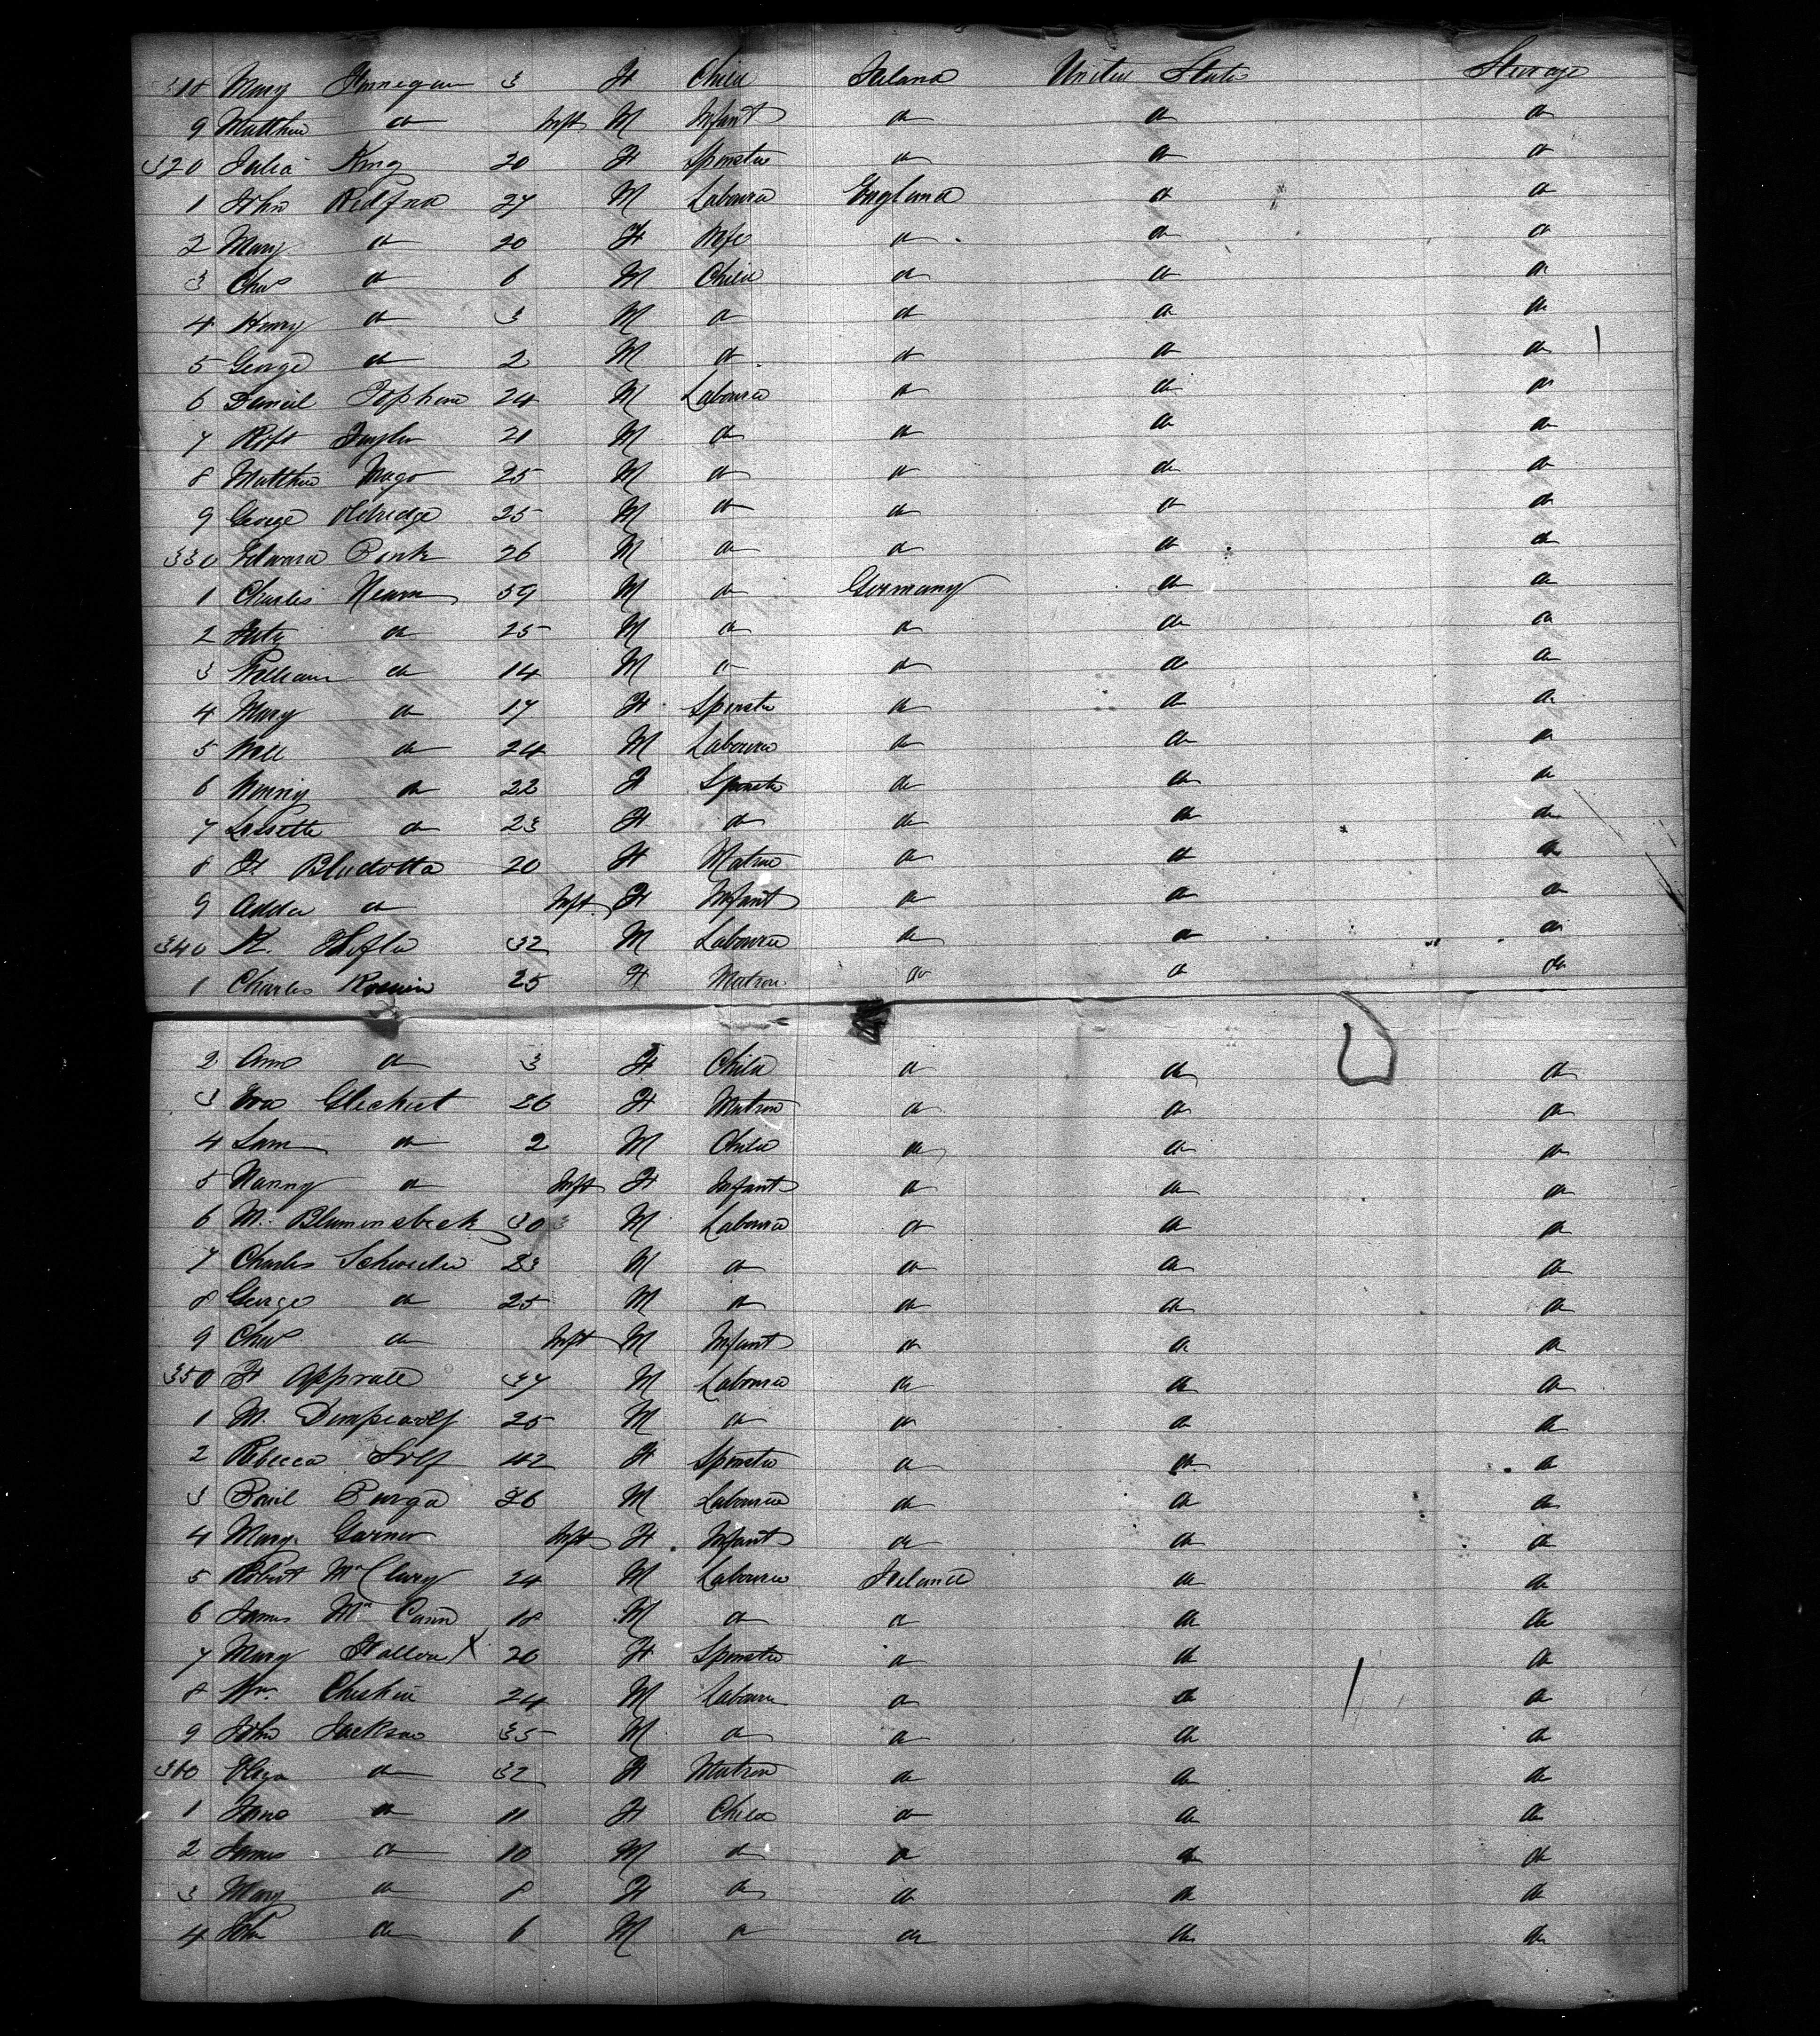 318 Mary Finnegan 3 F Child Ireland United States Steerage
9 Matthew do Inft M Infant do do do
320 Julia King 20 F Spinster do do do
1 John 27 M Labourer England do do
2 Mary do 20 F Wife do do do
3 Chas do 6 M Child do do do
4 Henry do 3 M do do do do
5 George do 2 M do do do do
6 Daniel 24 M Labourer do do do
7 Robt Taylor 21 M do do do do
8 Matthew 25 M do do do do
9 George 25 M do do do do
330 Edward 26 M do do do do
1 Charles 39 M do Germany do do
2 do 25 M do do do do
3 William do 14 M do do do do
4 Mary do 17 F Spinster do do do
5 Will do 24 M Labourer do do do
6 do 22 F Spinster do do do
7 do 23 F do do do do
8 F Bludotta 20 F Matron do do do
9 Adda do Inft F Infant do do do
340 32 M Labourer do do do
1 Charles 25 F Matron do do do
2 Ann do 3 F Child do do do
3 Eva 26 F Matron do do do
4 Sam do 2 M Child do do do
5 Nanny do Inft F Infant do do do
6 M. Blumensbeck 30 M Labourer do do do
7 Charles 23 M do do do do
8 George do 25 M do do do do
9 Chas do Inft M Infant do do do
350 F 37 M Labourer do do do
1 M. 25 M do do do do
2 Rebecca 42 F Spinster do do do
3 26 M Labourer do do do
4 Mary Garner Inft F Infant do do do
5 Robert McClury 24 M Labourer Ireland do do
6 James McCann 18 M do do do do
7 Mary X 20 F Spinster do do do
8 Wm. 24 M Labourer do do do
9 John Jackson 35 M do do do do
360 Eliza do 32 F Matron do do do
1 Jane do 11 F Child do do do
2 James do 10 M do do do do
3 Mary do 8 F do do do do
4 John do 6 M do do do do